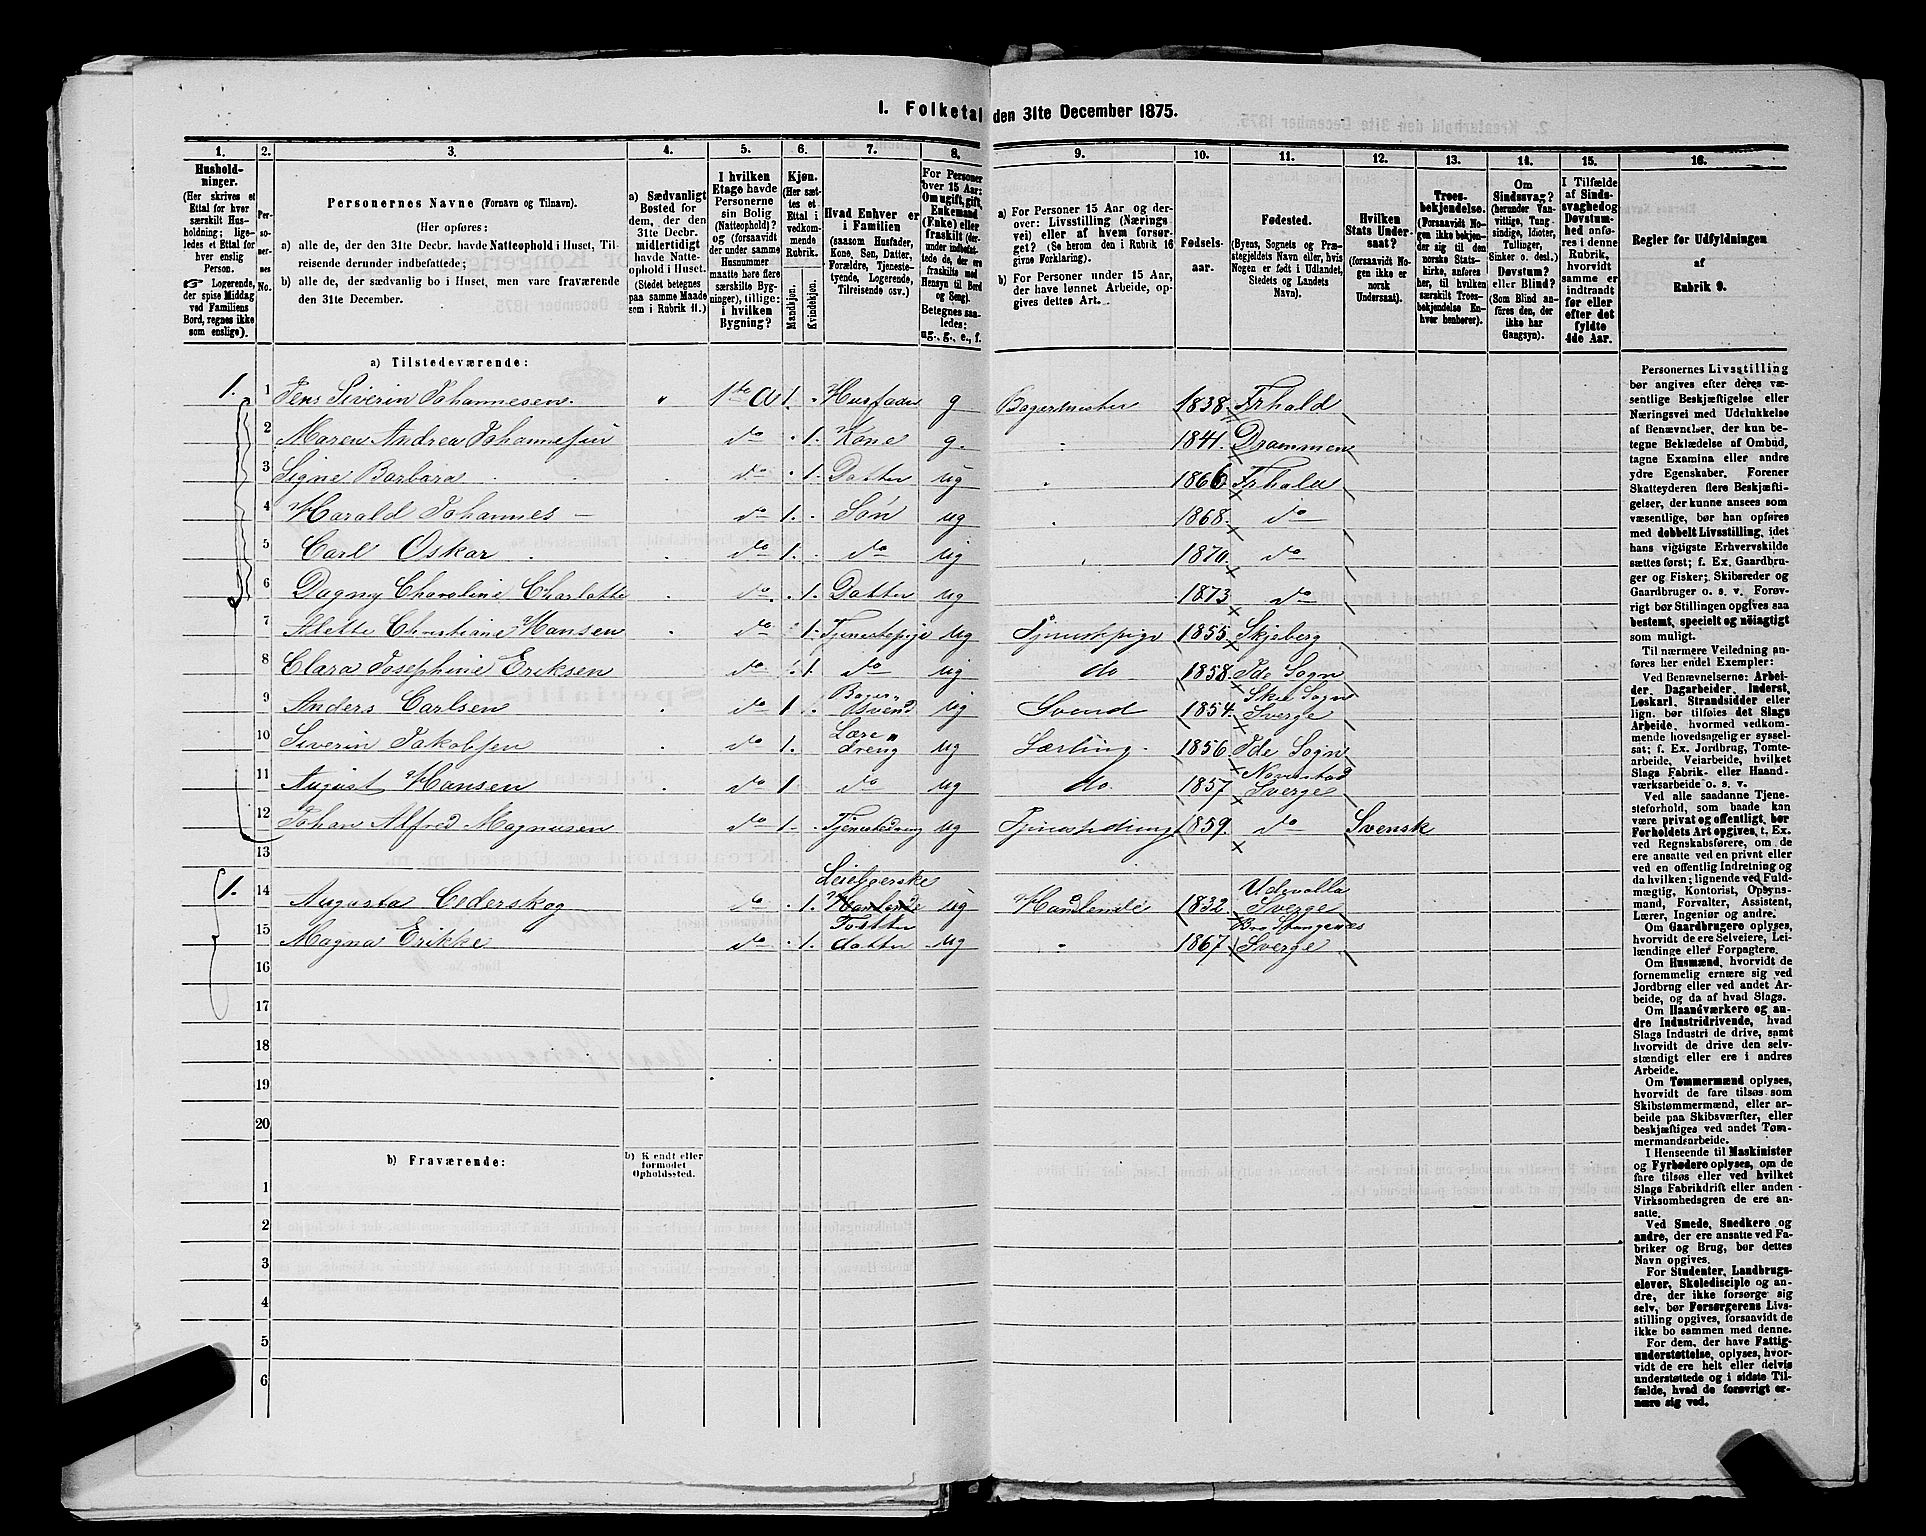 1. Folketal den 31te December 1875.
1.
Hushold-
ninger.
(Her skrives et
Ettal for hver
særskilt Hus-
holdning; lige-
ledes et Ettal for
hver enslig
Person.
Logerende,
der spise Middag
ved Familiens
Bord, regnes ikke
som enslige).
2.
Per-
so-
ner-
nes
No.
3.
Personernes Navne (Fornavn og Tilnavn).
(Her opføres:
a) alle de, der den 31te Decbr. havde Natteophold i Huset, Til-
reisende derunder indbefattede;
b) alle de, der sædvanlig bo i Huset, men vare fraværende
den 31te December.
4.
a) Sædvanligt
Bosted for
dem, der den
31te Decbr.
midlertidigt
havde Natte-
ophold i Huset.
(Stedet betegnes
paa samme Maade
som i Rubrik 11.)
5.
I hvilken
Etage havde
Personerne
sin Bolig
(Natteophold)?
og (forsaavidt
der under samme
Husnummer
maatte høre flere
særskilte Byg-
ninger), tillige:
i hvilken
Bygning?
6.
Kjøn.
(Her sæt-
tes et
Ettal i
vedkom-
mende
Rubrik.
Mandkjøn.
Kvindekjøn.
7.
Hvad Enhver er
i Familien
(saasom Husfader,
Kone, Søn, Datter,
Forældre, Tjeneste-
tyende, Logerende,
Tilreisende osv.).
8.
For Personer
over 15 Aar:
Om ugift, gift,
Enkemand
(Enke) eller
fraskilt (der-
under indbefat-
tede de, der ere
fraskilte med
Hensyn til Bord
og Seng).
Betegnes saa-
ledes:
ug., g., e., f.
9.
a) For Personer 15 Aar og der-
over: Livsstilling (Nærings-
vei) eller af hvem forsør-
get? (Se herom den i Rubrik 16
givne Forklaring).
b) For Personer under 15 Aar,
der have lønnet Arbeide, op-
gives dettes Art.
10.
Fødsels-
aar.
11.
Fødested.
(Byens, Sognets og Præ-
stegjeldets Navn eller, hvis
Nogen er født i Udlandet,
Stedets og Landets
Navn).
12.
Hvilken
Stats Under-
saat?
(forsaavidt No-
gen ikke er
norsk
Undersaat).
13.
Troes-
bekjendelse.
(Forsaavidt No-
gen ikke bekjen-
der sig til den
norske Stats-
kirke, anføres
her, til hvilken
særskilt Troes-
bekjendelse En-
hver henhører).
14.
Om
Sindssvag?
(herunder Van-
vittige, Tung-
sindige, Idioter,
Tullinger,
Sinker o. desl.)
Døvstum?
eller Blind?
(Som Blind an-
føres den, der
ikke har
Gangsyn).
15.
I Tilfælde
af Sinds-
svaghed og
Døvstum-
hed anføres
i denne
Rubrik,
hvorvidt
samme er
indtraadt
før eller
efter det
fyldte
4de Aar.
16.
Regler for Udfyldningen
af
Rubrik 9.
a) Tilstedeværende:
1. 1 Jens Siverin Johannesen. 1ste A 1. Husfader g Bagermester 1838 Frhald
2 Maren Andrea Johannesen do 1. Kone g. 1841. Drammen
3 Signe Barbara do 1. Datter ug 1866 Frhald
4 Harald Johannes do 1. Søn ug 1868. do
5 Carl Oskar do 1. do ug 1870. do
6 Dagny Charoline Charlotte do 1. Datter ug 1873 do
7 Alette Christiane Hansen do 1. Tjenestepige ug Tjenestepige 1855. Skjeberg
8 Clara Josephine Eriksen do 1 do ug do 1858. Ide Sogn
9 Anders Carlsen do 1 Bager Svend ug Svend 1854. Skee Sogn Sverge
10 Siverin Jakobsen do 1. Lære dreng ug Lærling 1856. Ide Sogn
11 August Hansen do 1 do ug do 1857 Navestad Sverge
12 Johan Alfred Magnusen do 1 Tjenestedreng ug Tjenestedreng 1859. do Svensk
13
1. 14 Augusta Cederskog do 1. Leieligerske Handlende ug Handlende 1832. Udevalla Sverge
15 Magna Erikke do 1. Foster datter ug 1867 Sverge
16
17
18
19
20
b) Fraværende:
b) Kjendt eller
formodet
Opholdssted.
1
2
3
4
5
6
Personernes Livsstilling
bør angives efter deres væ-
sentlige Beskjæftigelse eller
Næringsvei med Udelukkelse
af Benævnelser, der kun be-
tegne Beklædelse af Ombud,
tagne Examina eller andre
ydre Egenskaber. Forener
Skatteyderen flere Beskjæfti-
gelser, der kunne ansees som
væsentlige, bør han opføres
med dobbelt Livsstilling, idet
hans vigtigste Erhvervskilde
sættes først; f. Ex. Gaardbru-
ger og Fisker; Skibsreder og
Gaardbruger o. s. v. Forøv-
rigt bør Stillingen opgives saa
bestemt, specielt og nøiagtigt
som muligt.
Til nærmere Veiledning an-
føres her endel Exempler:
Ved Benævnelserne: Arbei-
der, Dagarbeider, Inderst,
Løskarl, Strandsidder eller
lign. bør tilføies det Slags
Arbeide, hvormed vedkom-
mende hovedsagelig er syssel-
sat; f. Ex. Jordbrug, Tomte-
arbeide, Veiarbeide, hvilket
Slags Fabrik- eller Haand-
værksarbeide o. s. v.
Ved alle saadanne Tjene-
steforhold, som baade kan
være privat og offentligt, bør
Forholdets Art opgives, t. Ex.
ved Regnskabsførere, om de
ere ansatte ved en privat eller
ved en offentlig Indretning og
da hvilken; lignende ved Fuld-
mægtig, Kontorist, Opsyns-
mand, Forvalter, Assistent,
Lærer, Ingeniør og andre.
Om Gaardbrugere oplyses,
hvorvidt de ere Selveiere, Lei-
lændinge eller Forpagtere.
Om Husmænd, hvorvidt de
fornemmelig ernære sig ved
Jordbrug eller ved andet Ar-
beide, og da af hvad Slags.
Om Haandværkere og an-
dre Industridrivende, hvad
Slags Industri de drive, samt
hvorvidt de drive den selv-
stændigt eller ere i andres
Arbeide.
Om Tømmermænd oplyses,
hvorvidt de fare tilsøs som
Skibstømmermænd, eller ar-
beide paa Skibsværfter, eller
beskjæftiges ved andet Tøm-
mermandsarbeide.
I Henseende til Maskinister
og Fyrbødere oplyses, om de
fare tilsøs eller ved hvilket
Slags Fabrikdrift eller anden
Virksomhedsgren de ere an-
satte.
Ved Smede, Snedkere og
andre, der ere ansatte ved Fa-
briker og Brug, bør dettes
Navn opgives.
For Studenter, Landbrugs-
elever, Skoledisciple og an-
dre, der ikke forsørge sig
selv, bør Forsørgerens Livs-
stilling opgives, forsaavidt de
ikke bo sammen med denne.
For dem, der have Fattig-
understøttelse, oplyses, hvor-
vidt de ere helt eller delvis
understøttede og i sidste Til-
fælde, hvad de forøvrigt er-
nære sig ved.